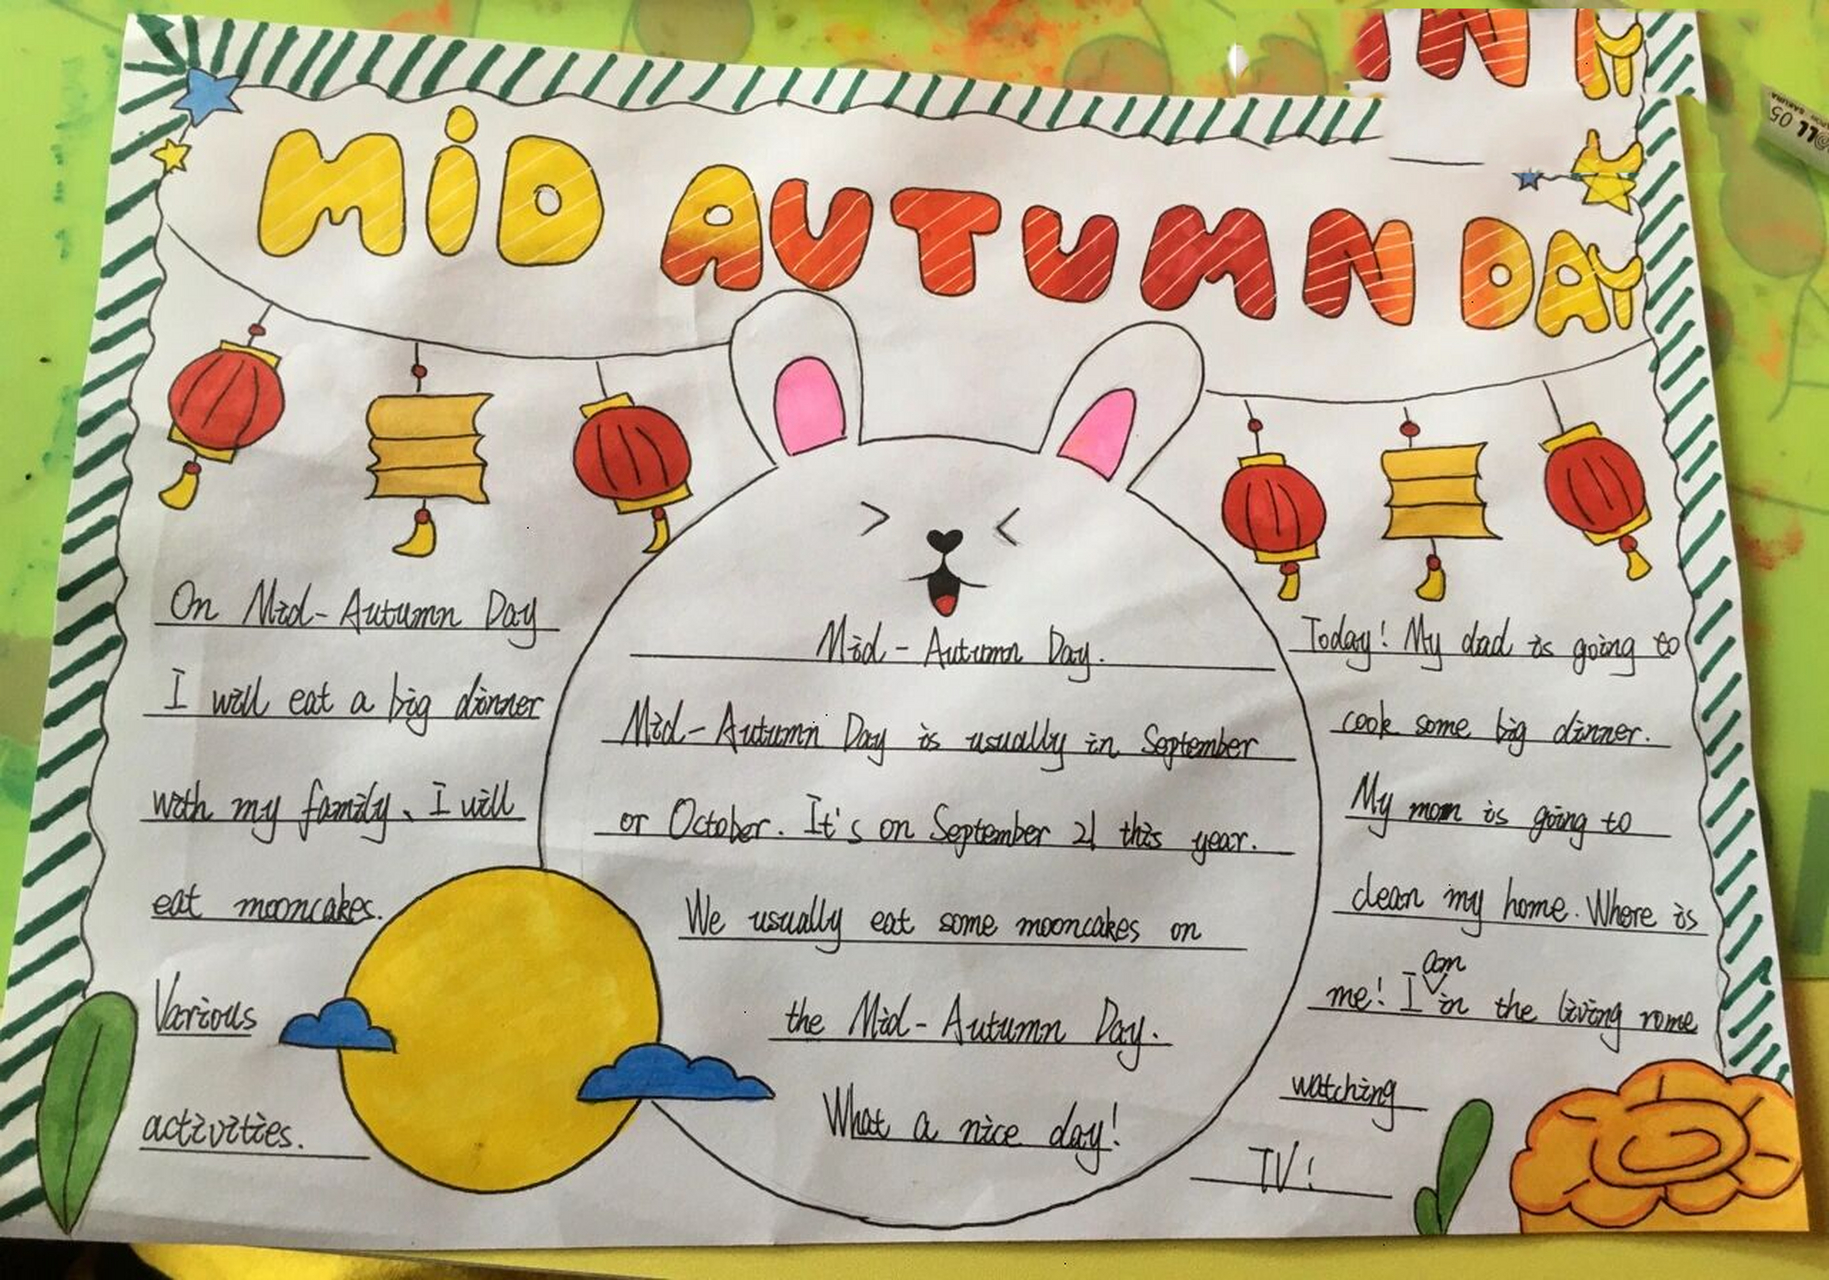 MiD AUTUMN DAY
On Mid-Autumn Day
I will eat a big dinner
with my family、I will
eat mooncakes.
Various
activities.
Mid-Autumn Day.
Mid-Autumn Day is usually in September
or October. It's on September 21 this year.
We usually eat some mooncakes on
the Mid-Autumn Day.
What a nice day!
Today! My dad is going to
cook some big dinner.
My mom is going to
clean my home. Where is
me! I am in the living rome
watching
TV!
05